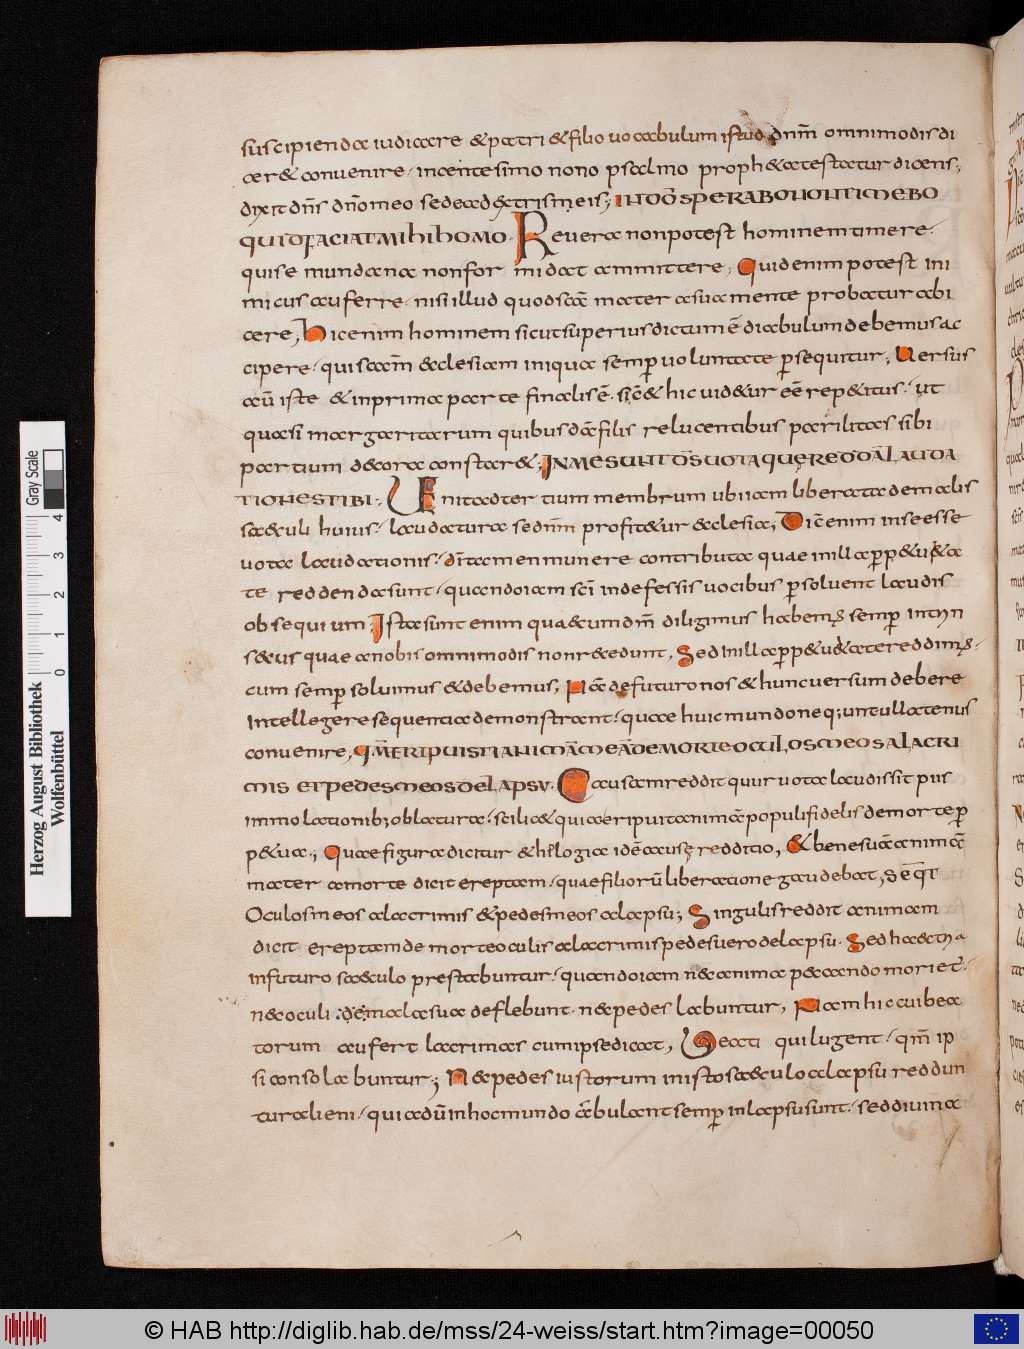 suscipienda iudicare & patri & filio uocabulum istud dnm̄ omnimodis di
cer& conuenire. in centesimo nono psalmo proph& atestatur dicens;
dixit dn̄s dn̄o meo sede ad dextris meis; IN DŌ SPERABO NON TIMEBO
QUID FACIAT MIHI HOMO. Reuera non potest hominem timere.
qui se mundana non formidat ammittere; Quid enim potest ini
micus auferre. nisi illud quod scā mater a sua mente probatur abi
cere; hic enim hominem sicut superius dictum ē diabulum debemus ac
cipere. qui scam̄ &clesiam iniqua semp̄ uoluntate p̄sequitur; Uersus
aū iste & in prima parte finalis ē. sic̄ & hic uid&ur eē rep&itus. ut
quasi margaritarum quibusdā filis relucentibus parilitas sibi
partium decora constar&; IN ME SUNT DS̄ UOTA QUĘ REDDĀ LAUDA
TIONES TIBI. UEnit ad tertium membrum ubi iam liberata de malis
saeculi huius. laudatura se dnm̄ profit&ur &clesia; Dic̄ enim in se esse
uota laudationis. di tamen munere contributa quae in illa perp&u&a
te reddenda sunt. quando iam sc̄i indefessis uocibus p̄soluent laudis
obsequium; Ista sunt enim quaecum dm̄ diligimus habem; semp̄ intrin
s&us quae a nobis omnimodis non recedunt; Sed in illa perp&u&ate reddim;
cum semp̄ soluimus & debemus; Nā de futuro nos & hunc uersum debere
intellegere sequentia demonstrant. quae huic mundo neq; untullatenus
conuenire; QM̄ ERIPUISTI ANIMĀ MEĀ DE MORTE OCULOS MEOS A LACRI
MIS ET PEDES MEOS DE LAPSU. Causam reddit quur uota laudis sit pus
immolationib; oblatura. scilic& qui aeripuit animā populi fidelis de morte p̄
p&ua; Quae figura dicitur & hilogia idē causę redditio; & bene suā animā
mater a morte dicit ereptam. quae filiorū liberatione gaudebat; SEQT
Oculos meos a lacrimis & pedes meos a lapsu; Singulis reddit animam
dicit ereptam de morte oculis a lacrimis pedes uero de lapsu. Sed haec
in futuro saeculo prestabuntur. quando iam nec anima peccando moriet̄.
nec oculi de mala sua deflebunt. nec pedes labuntur; Nam hic cui bea
torum aufert lacrimas cum ipse dicat; Beati qui lugent. qm̄ ip
si consolabuntur; Nec pedes iustorum in isto saeculo a lapsu reddun
tur alieni. qui adū in hoc mundo ābulant semp̄ in lapsu sunt. sed diuina
Gray Scale
4
3
2
1
0
Herzog August Bibliothek
Wolfenbüttel
© HAB http://diglib.hab.de/mss/24-weiss/start.htm?image=00050